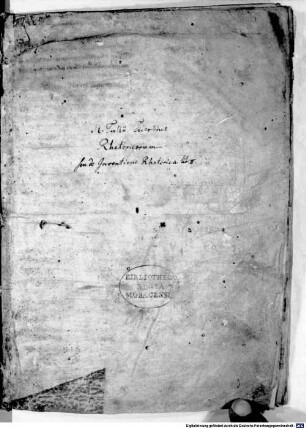 M. Tullii Ciceronis
Rhetoricorum
seu de Inventione Rhetorica lib. II
BIBLIOTHECA
REGIA
MONACENSIS
Digitalisierung gefördert durch die Deutsche Forschungsgemeinschaft